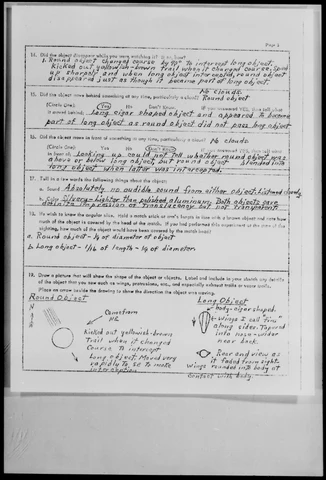 Page 3
14. Did the object disappear while you were watching it? If so, how?
1. Round object changed course by 90° to intercept long object.
Kicked out yellowish-brown trail when it changed course, sped
up sharply and when long object intercepted, round object
disappeared just as though it became part of long object.
No clouds.
15. Did the object move behind something at any time, particularly a cloud? Round object
(Circle One): Yes No Don't Know. IF you answered YES, then tell what
it moved behind: Long cigar shaped object and appeared to become
part of long object as round object did not pass long object
16. Did the object move in front of something at any time, particularly a cloud? No clouds
(Circle One): Yes No Don't Know. IF you answered YES, then tell what
in front of: Looking up could not tell whether round object was
above or below long object but round object blended into
long object when latter was intercepted.
17. Tell in a few words the following things about the object:
a. Sound Absolutely no audible sound from either object. Listened closely.
b. Color Silvery-lighter than polished aluminum. Both objects gave
definite impression of translucency but not transparent.
18. We wish to know the angular size. Hold a match stick at arm's length in line with a known object and note how
much of the object is covered by the head of the match. If you had performed this experiment at the time of the
sighting, how much of the object would have been covered by the match head?
a. Round object-
b. Long object-
19. Draw a picture that will show the shape of the object or objects. Label and include in your sketch any details
of the object that you saw such as wings, protrusions, etc., and especially exhaust trails or vapor trails.
Place an arrow beside the drawing to show the direction the object was moving.
Round Object
Came from
Kicked out yellowish-brown
Trail when it changed
Course to intercept
Long object. Moved very
rapidly To SE To make
interception
Long Object
body-cigar shaped.
Wings I call "fins"
along sides. Tapered
into nose-wider
near back.
Rear end view as
it faded from sight.
Wings rounded into body at
contact with body.